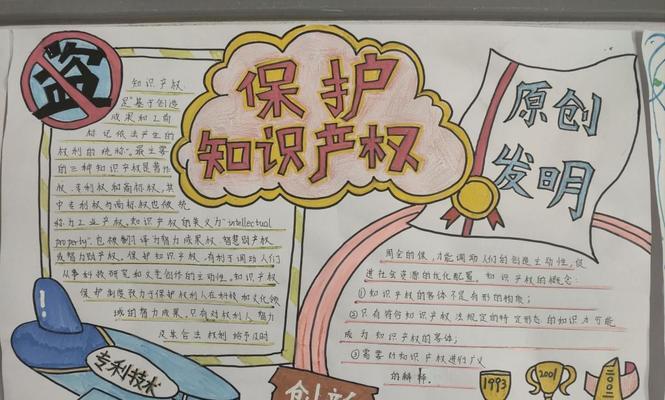 盗
保护
知识产权
原创
发明
知识产权,
是“基于创造
成果和工商
标记依法产生的
权利的统称”。最主要
的三种知识产权是著作
权、专利权和商标权,其
中专利权与商标权也被统
称为工业产权。知识产权的英文为“intellectual
property”,也被翻译为智力成果权、智慧财产权
或智力财产权。保护知识产权,有利于调动人们
从事科技研究和文艺创作的主动性。知识产权
保护制度致力于保护权利人在科技和文化领
域的智力成果。只有对权利人智力
及其合法权利给予及时
周全的保,才能调动人们的创造主动性,促
进社会资源的优化配置。知识产权的概念:
①知识产权的客体不是有形的物质;
②只有符合知识产权法规定的特定形态的知识才可能
成为知识产权的客体;
③需要对知识产权进行广义
的解释。
专利技术
创新
1993
2001